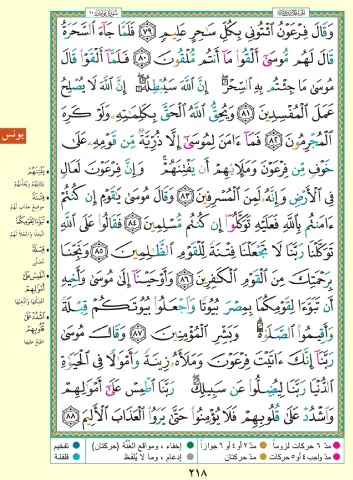 وَقَالَ فِرْعَوْنُ ٱئْتُونِى بِكُلِّ سَٰحِرٍ عَلِيمٍ ٧٩ فَلَمَّا جَآءَ ٱلسَّحَرَةُ
قَالَ لَهُم مُّوسَىٰٓ أَلْقُوا۟ مَآ أَنتُم مُّلْقُونَ ٨٠ فَلَمَّآ أَلْقَوْا۟ قَالَ
مُوسَىٰ مَا جِئْتُم بِهِ ٱلسِّحْرُ إِنَّ ٱللَّهَ سَيُبْطِلُهُۥٓ إِنَّ ٱللَّهَ لَا يُصْلِحُ
عَمَلَ ٱلْمُفْسِدِينَ ٨١ وَيُحِقُّ ٱللَّهُ ٱلْحَقَّ بِكَلِمَٰتِهِۦ وَلَوْ كَرِهَ
ٱلْمُجْرِمُونَ ٨٢ فَمَآ ءَامَنَ لِمُوسَىٰٓ إِلَّا ذُرِّيَّةٌ مِّن قَوْمِهِۦ عَلَىٰ
خَوْفٍ مِّن فِرْعَوْنَ وَمَلَإِي۟هِمْ أَن يَفْتِنَهُمْ وَإِنَّ فِرْعَوْنَ لَعَالٍ
فِى ٱلْأَرْضِ وَإِنَّهُۥ لَمِنَ ٱلْمُسْرِفِينَ ٨٣ وَقَالَ مُوسَىٰ يَٰقَوْمِ إِن كُنتُمْ
ءَامَنتُم بِٱللَّهِ فَعَلَيْهِ تَوَكَّلُوٓا۟ إِن كُنتُم مُّسْلِمِينَ ٨٤ فَقَالُوا۟ عَلَى ٱللَّهِ
تَوَكَّلْنَا رَبَّنَا لَا تَجْعَلْنَا فِتْنَةً لِّلْقَوْمِ ٱلظَّٰلِمِينَ ٨٥ وَنَجِّنَا
بِرَحْمَتِكَ مِنَ ٱلْقَوْمِ ٱلْكَٰفِرِينَ ٨٦ وَأَوْحَيْنَآ إِلَىٰ مُوسَىٰ وَأَخِيهِ
أَن تَبَوَّءَا لِقَوْمِكُمَا بِمِصْرَ بُيُوتًا وَٱجْعَلُوا۟ بُيُوتَكُمْ قِبْلَةً
وَأَقِيمُوا۟ ٱلصَّلَوٰةَ وَبَشِّرِ ٱلْمُؤْمِنِينَ ٨٧ وَقَالَ مُوسَىٰ
رَبَّنَآ إِنَّكَ ءَاتَيْتَ فِرْعَوْنَ وَمَلَأَهُۥ زِينَةً وَأَمْوَٰلًا فِى ٱلْحَيَوٰةِ
ٱلدُّنْيَا رَبَّنَا لِيُضِلُّوا۟ عَن سَبِيلِكَ رَبَّنَا ٱطْمِسْ عَلَىٰٓ أَمْوَٰلِهِمْ
وَٱشْدُدْ عَلَىٰ قُلُوبِهِمْ فَلَا يُؤْمِنُوا۟ حَتَّىٰ يَرَوُا۟ ٱلْعَذَابَ ٱلْأَلِيمَ ٨٨
يونس
مدّ ٦ حركات لزوماً
مدّ ٢ أو ٤ أو ٦ جوازاً
إخفاء، ومواقع الغُنَّة (حركتان)
تفخيم
مدّ واجب ٤ أو ٥ حركات
مدّ حركتان
إدغام، وما لا يُلفَظ
قلقلة
٢١٨